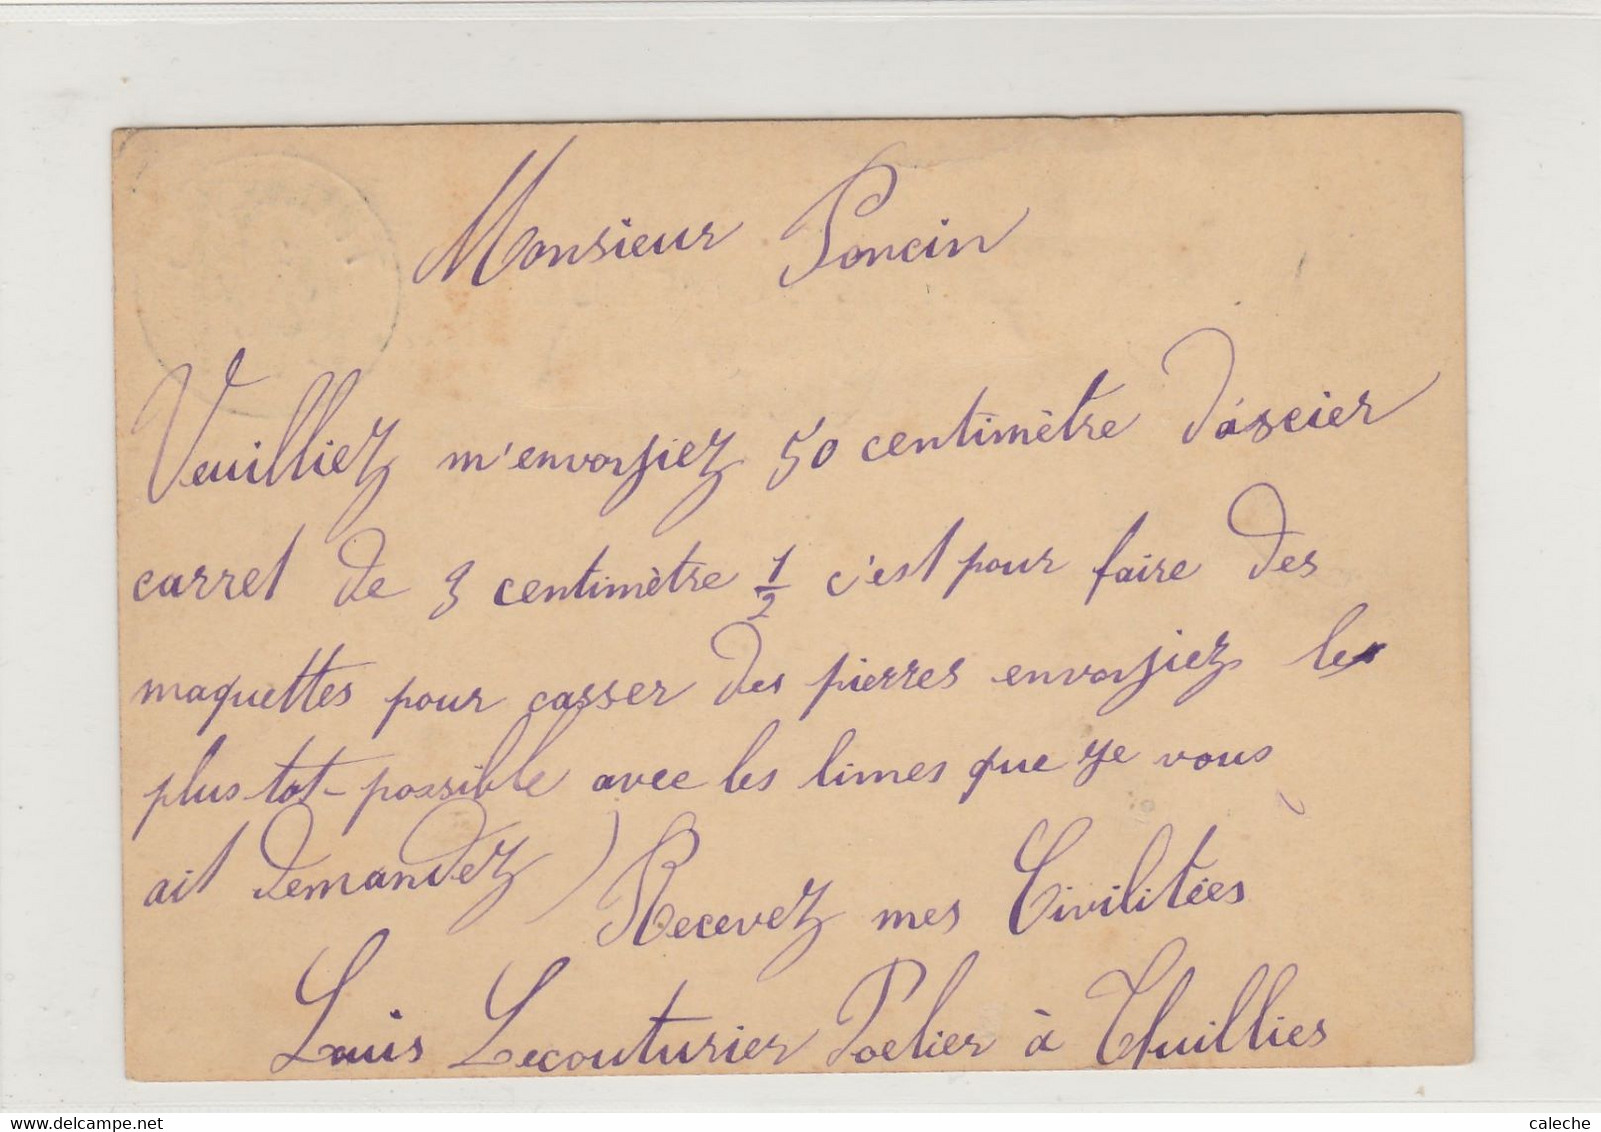 Monsieur Poncin
Veuilliez m'envoyiez 50 centimètre d'ascier
carret de 3 centimètre 1/2 c'est pour faire des
maquettes pour casser des pierres envoyiez le
plus tot-possible avec les limes que je vous
ait demandez ) Recevez mes Civilitées
Louis Lecouturier Poelier à Thuillies
caleche